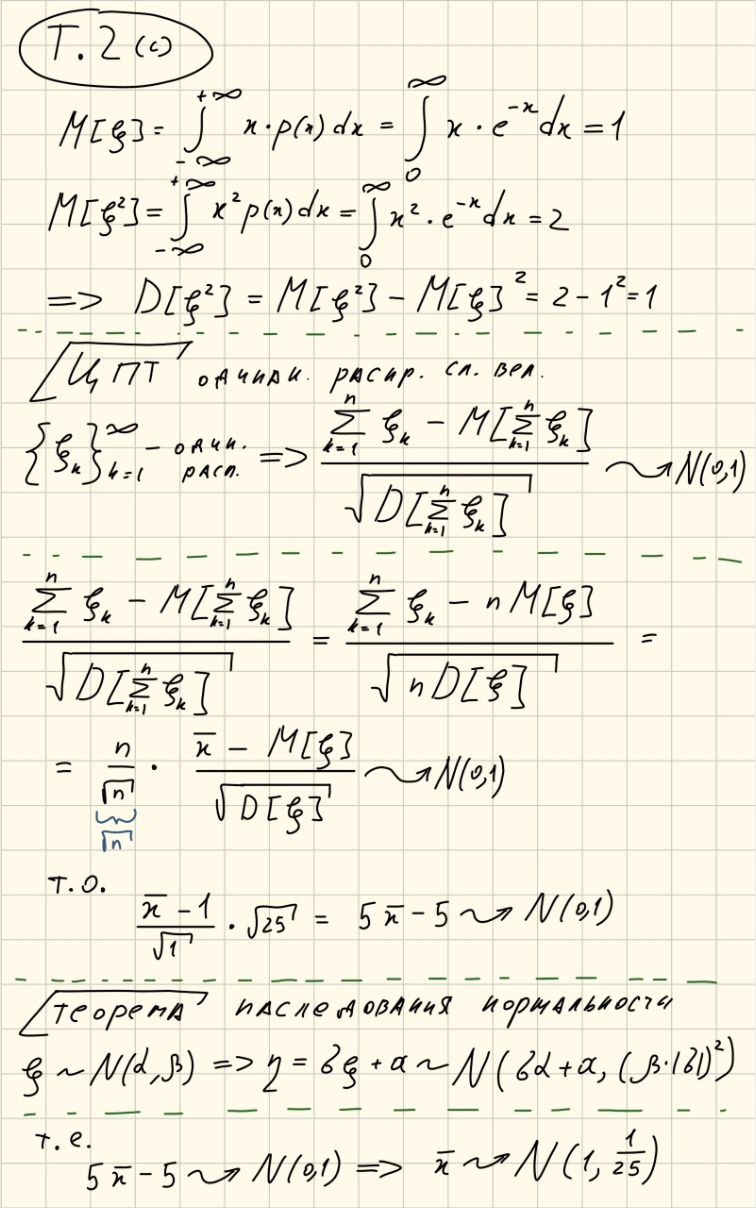 Т.2 (c)
M[ξ] = ∫_{-∞}^{+∞} x·p(x) dx = ∫_0^∞ x·e^{-x} dx = 1
M[ξ²] = ∫_{-∞}^{+∞} x² p(x) dx = ∫_0^∞ x²·e^{-x} dx = 2
=> D[ξ²] = M[ξ²] - M[ξ]² = 2 - 1² = 1
ЦПТ одинак. распр. сл. вел.
{ξ_k}_{k=1}^∞ - один. расп. => (∑_{k=1}^n ξ_k - M[∑_{k=1}^n ξ_k]) / √(D[∑_{k=1}^n ξ_k]) ⇝ N(0,1)
(∑_{k=1}^n ξ_k - M[∑_{k=1}^n ξ_k]) / √(D[∑_{k=1}^n ξ_k]) = (∑_{k=1}^n ξ_k - n M[ξ]) / √(n D[ξ]) =
= n/√n · (x̄ - M[ξ]) / √(D[ξ]) ⇝ N(0,1)
√n
т.о.
(x̄ - 1)/√1 · √25 = 5x̄ - 5 ⇝ N(0,1)
теорема наследования нормальности
ξ ~ N(α, β) => η = bξ + a ~ N(bα + a, (β·|b|)²)
т.е.
5x̄ - 5 ⇝ N(0,1) => x̄ ⇝ N(1, 1/25)